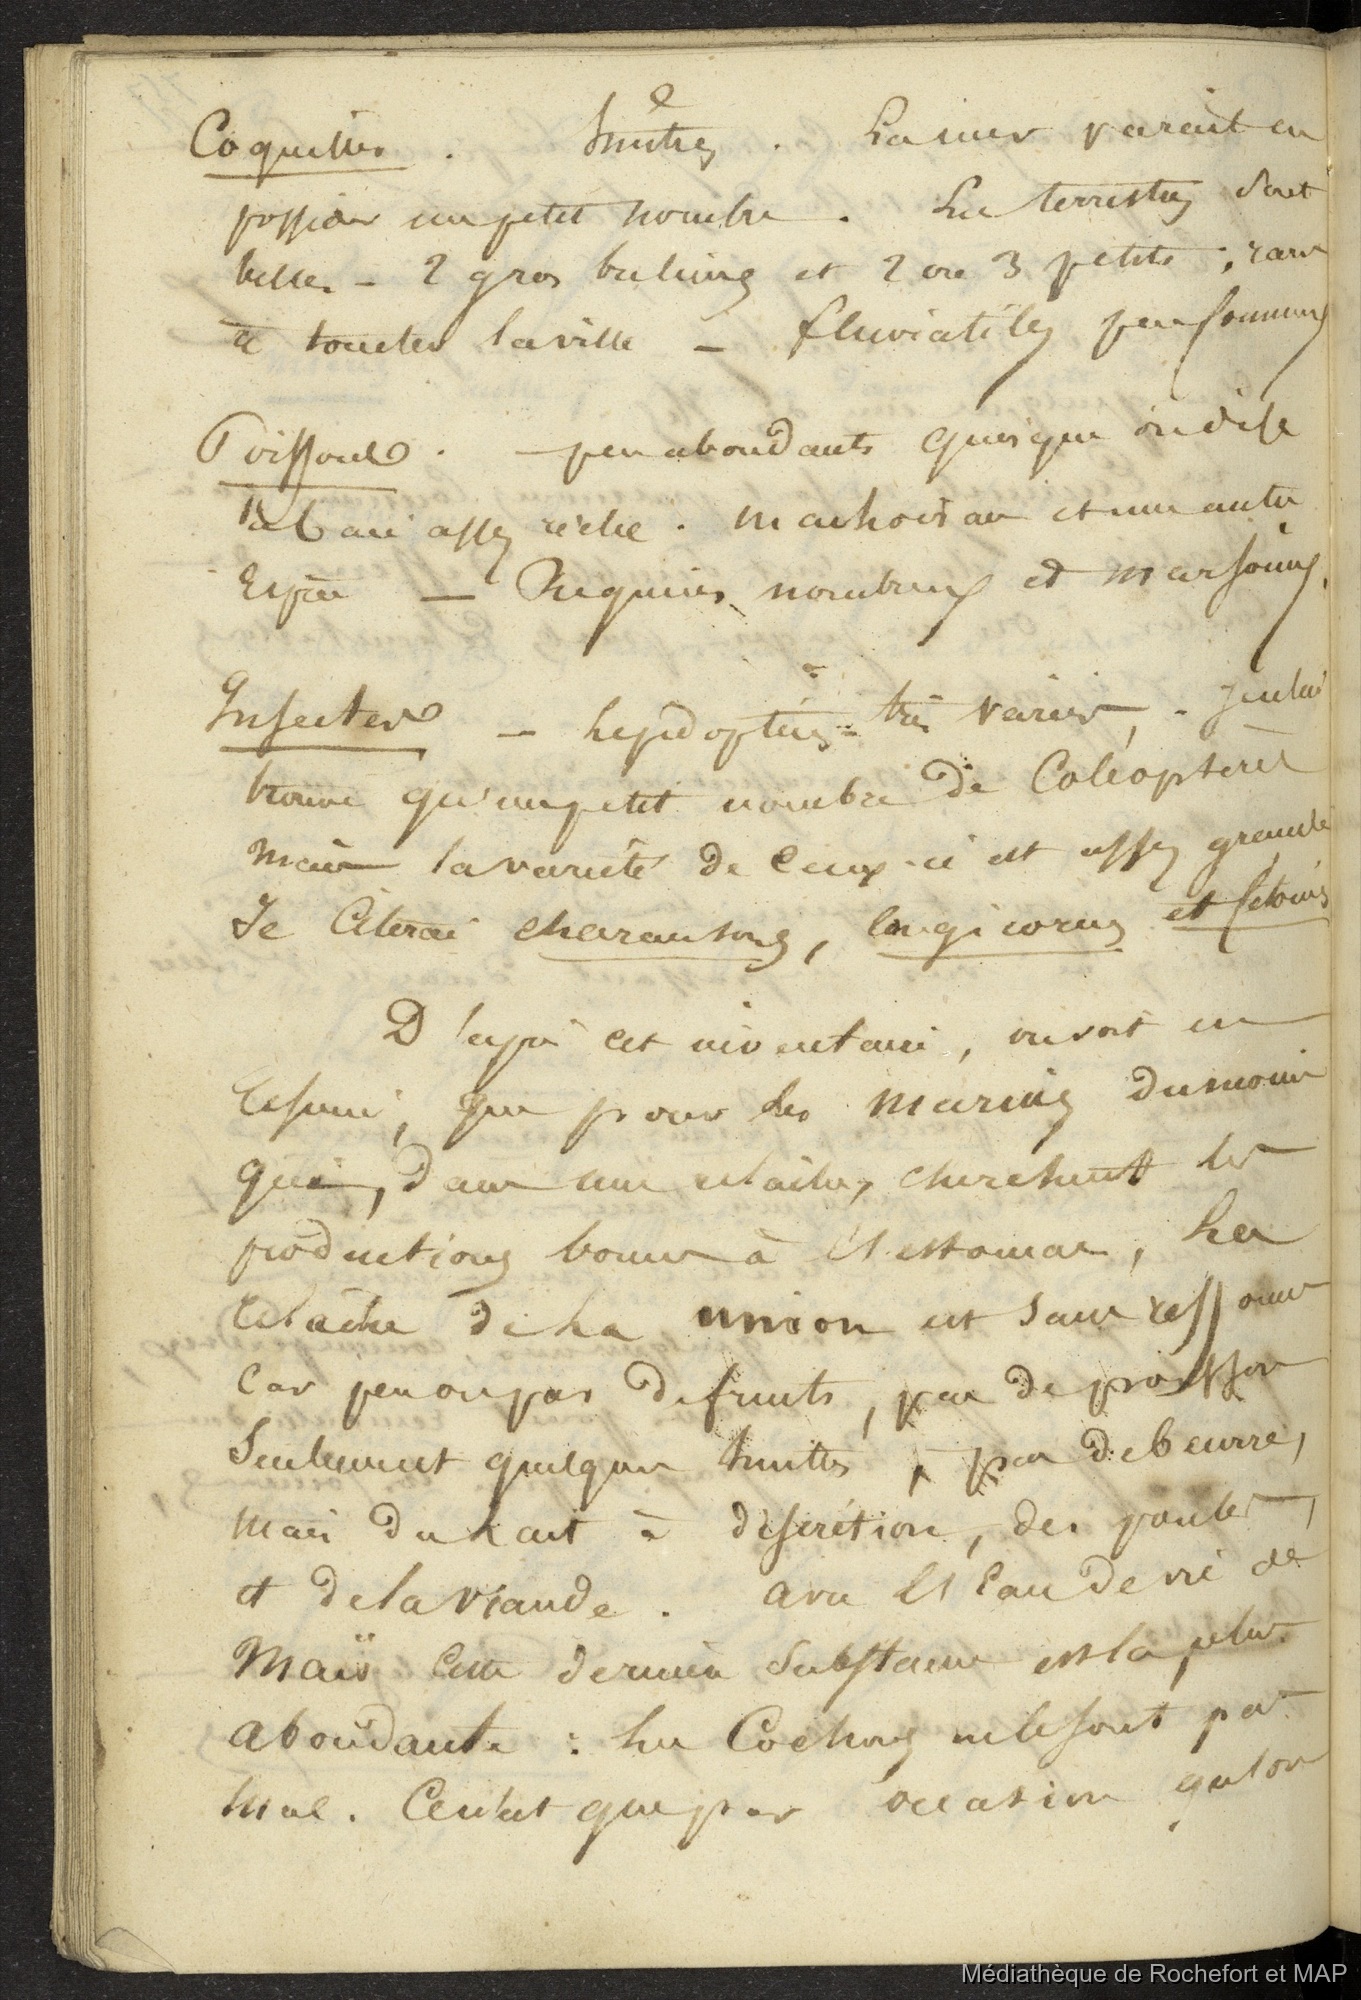 Coquilles . huîtres . La mer parait en
posséder un petit nombre . Les terrestres sont
belles - 2 gros bulimes et 2 ou 3 petits ; rare
à toutes la ville - fluviatiles peu communes
Poissons . - peu abondants quoiqu'on dise
assez riche . machoiran et une autre
Espèce - Requins nombreux et marsouins.
Insectes - Lépidoptères très variés, - Je n'ai
trouvé qu'un petit nombre de Coléoptères
mais la variété de ceux-ci est assez grande
Je Citerai charansons, longicornes et Cétoines
D'après cet inventaire, on voit en
résumé, que pour les marins du moins
qui, dans une relache, cherchent les
productions bonnes à l'estomac, La
relâche de La union est sans ressource
Car peu ou pas de fruits, pas de poisson
Seulement quelques huitres, pas de beurre,
mais du Lait à discrétion, des poules,
et de la viande . avec l'Eau de vie de
Maïs Cette dernière substance est la plus
abondante : Les Cochons ne le sont pas
mal . Ce n'est que par occasion qu'on
Médiathèque de Rochefort et MAP